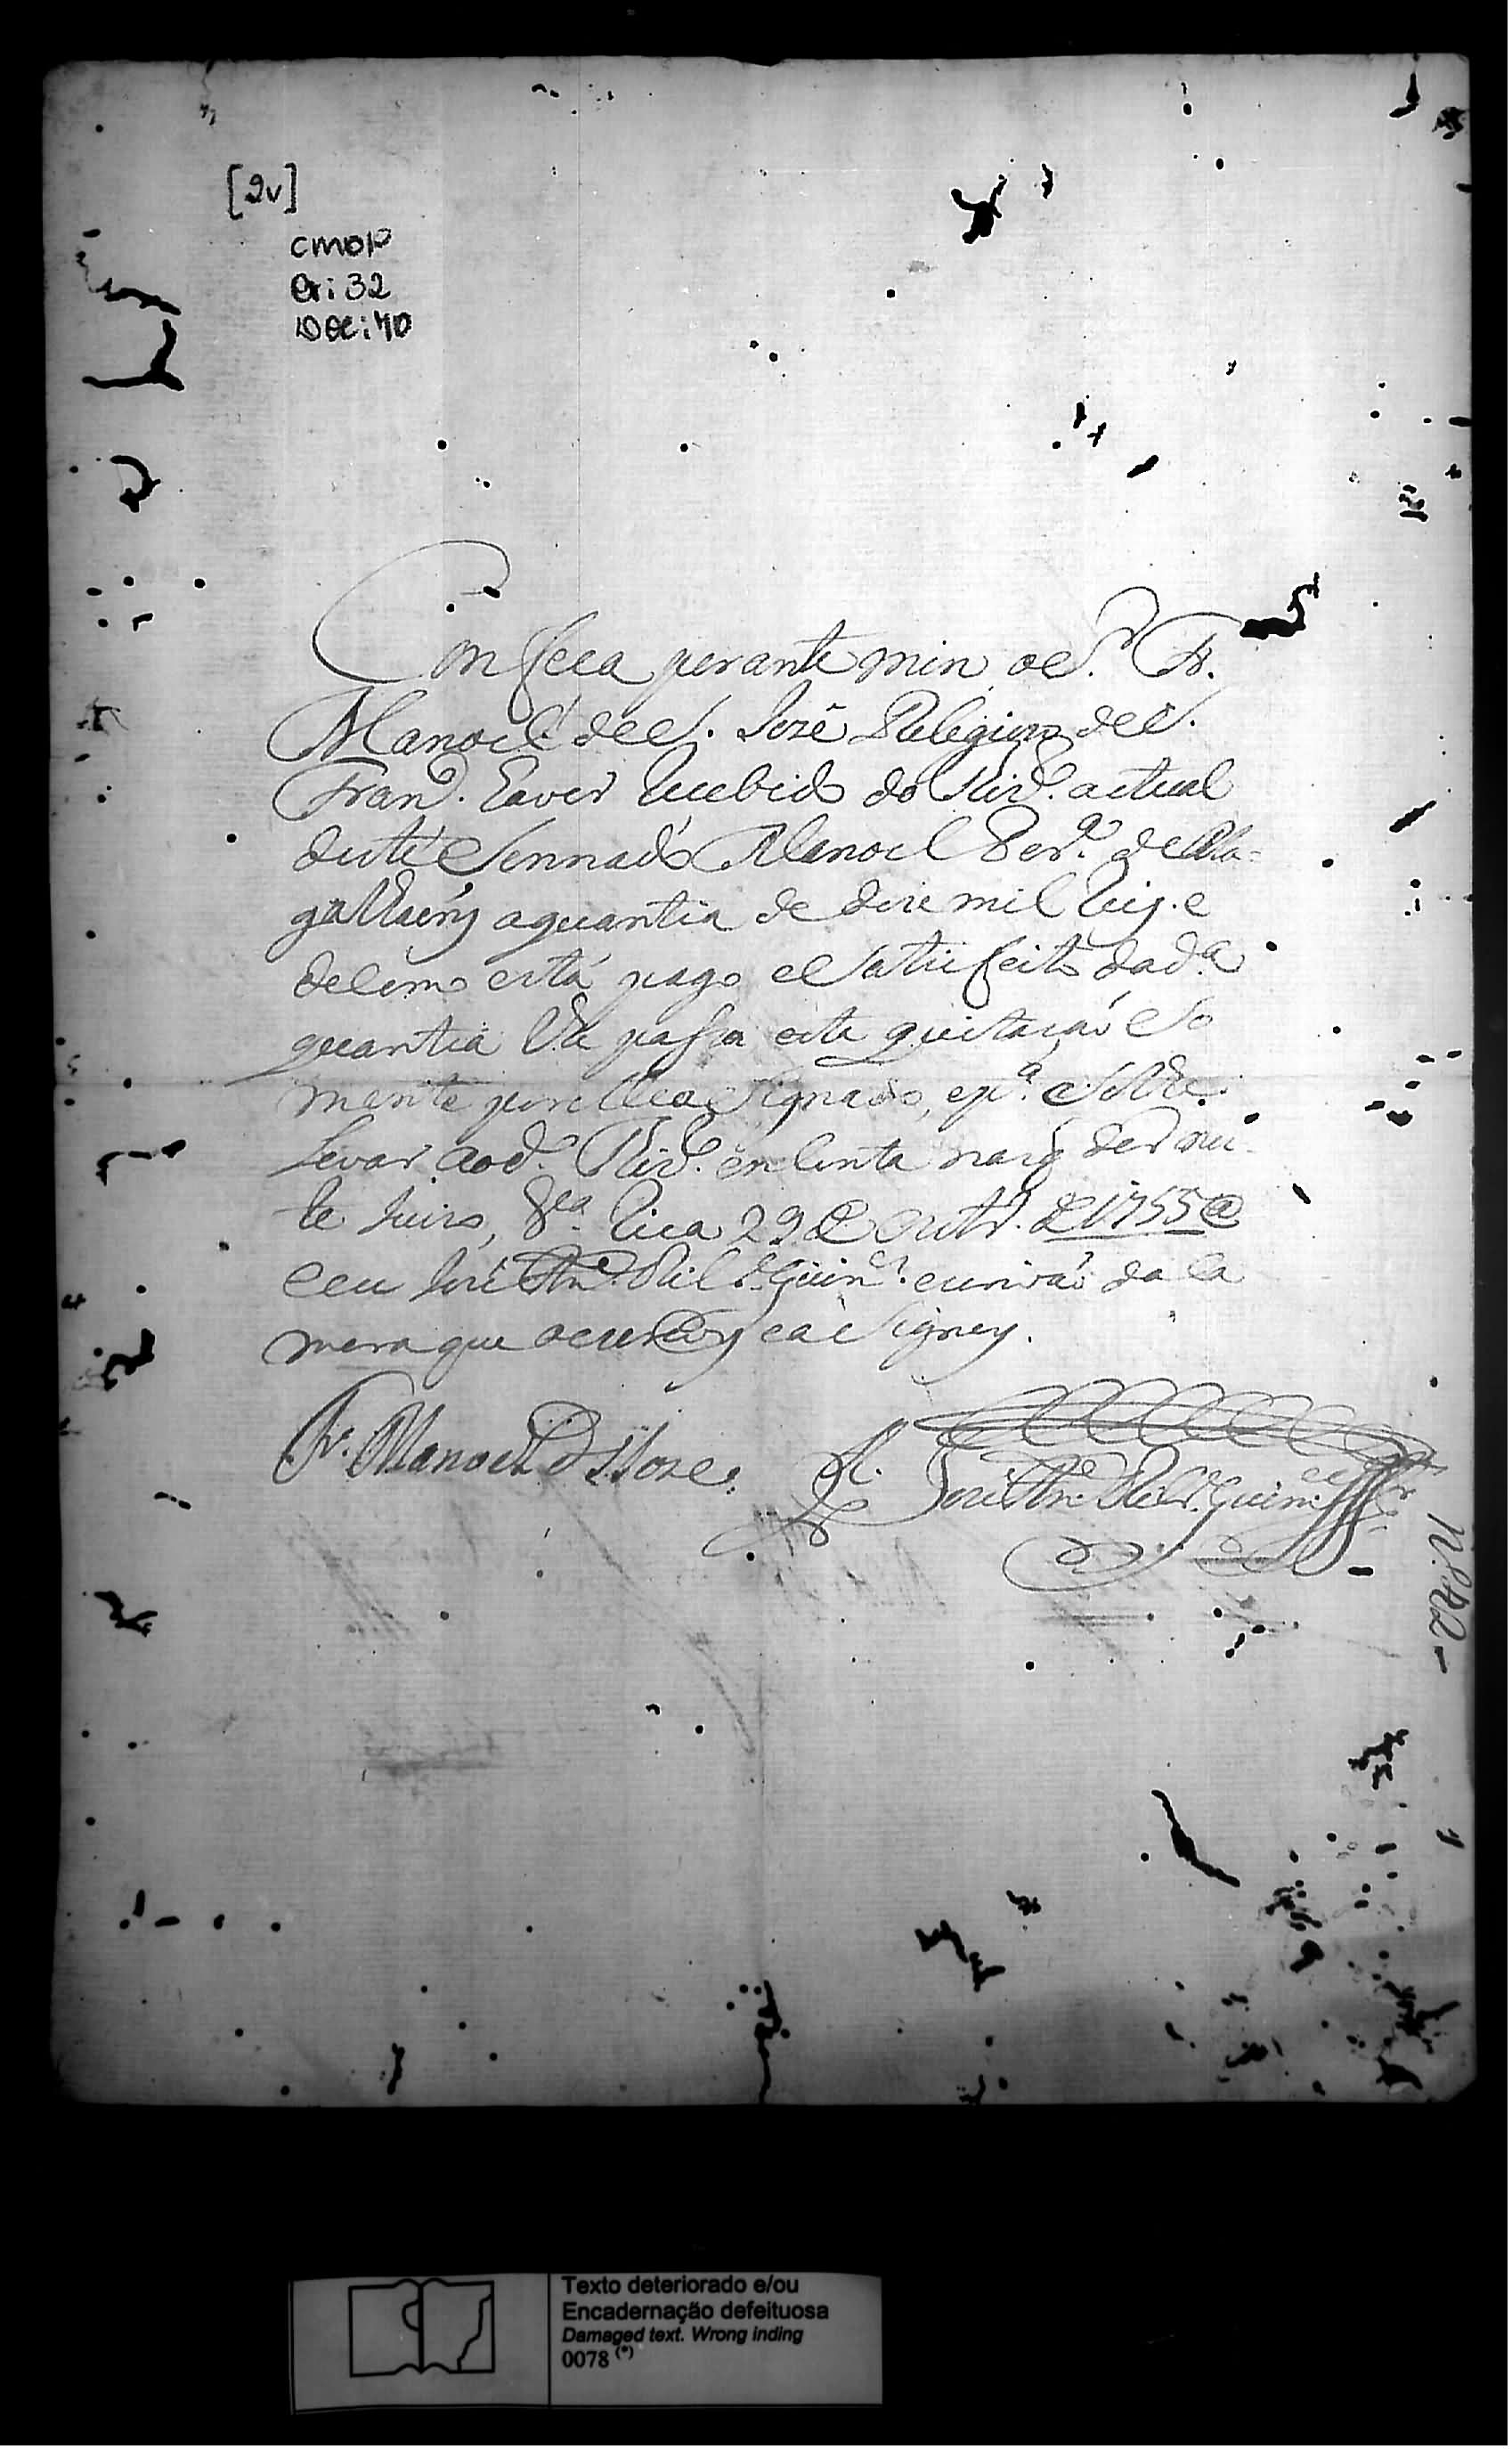 [2v]
CMOP
Cx: 32
Doc: 40
Confeça perante min o S.r Fr.
Manoel de S. Jozê Religiozo de S.
Fran.co haver Recebido do Thiz.o actual
deste Sennado Manoel Per.a de Ma=
galhaens aquantia de doze mil Reis. e
de como está pago e Satisfeito da d.a
quantia lhe passa esta quitacaó So
mente por elle aSignado, e p.a Selhe
Levar ao d.o Thiz.o em Conta na q der nes
te Juizo, V.a Rica 29 de Outr.o de 1755@
e eu José Ant.o Rib.ro Guim.es escrivaó da Ca
mera que o escrevy e aSigney.
Fr. Manoel de S. Joze.
José Ant.o Rib.ro Guim.es
N. 82-
Texto deteriorado e/ou
Encadernação defeituosa
Damaged text. Wrong inding
0078 (*)